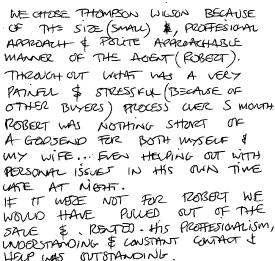 WE CHOSE THOMPSON WILSON BECAUSE
OF THE SIZE (SMALL) &, PROFFESIONAL
APPROACH & POLITE APPROACHABLE
MANNER OF THE AGENT (ROBERT).
THROUGHOUT WHAT WAS A VERY
PAINFUL & STRESSFUL (BECAUSE OF
OTHER BUYERS) PROCESS OVER 5 MONTH
ROBERT WAS NOTHING SHORT OF
A GODSEND FOR BOTH MYSELF &
MY WIFE... EVEN HELPING OUT WITH
PERSONAL ISSUES IN HIS OWN TIME
LATE AT NIGHT.
IF IT WERE NOT FOR ROBERT WE
WOULD HAVE PULLED OUT OF THE
SALE & RENTED. HIS PROFFESIONALISM,
UNDERSTANDING & CONSTANT CONTACT &
HELP WAS OUTSTANDING.